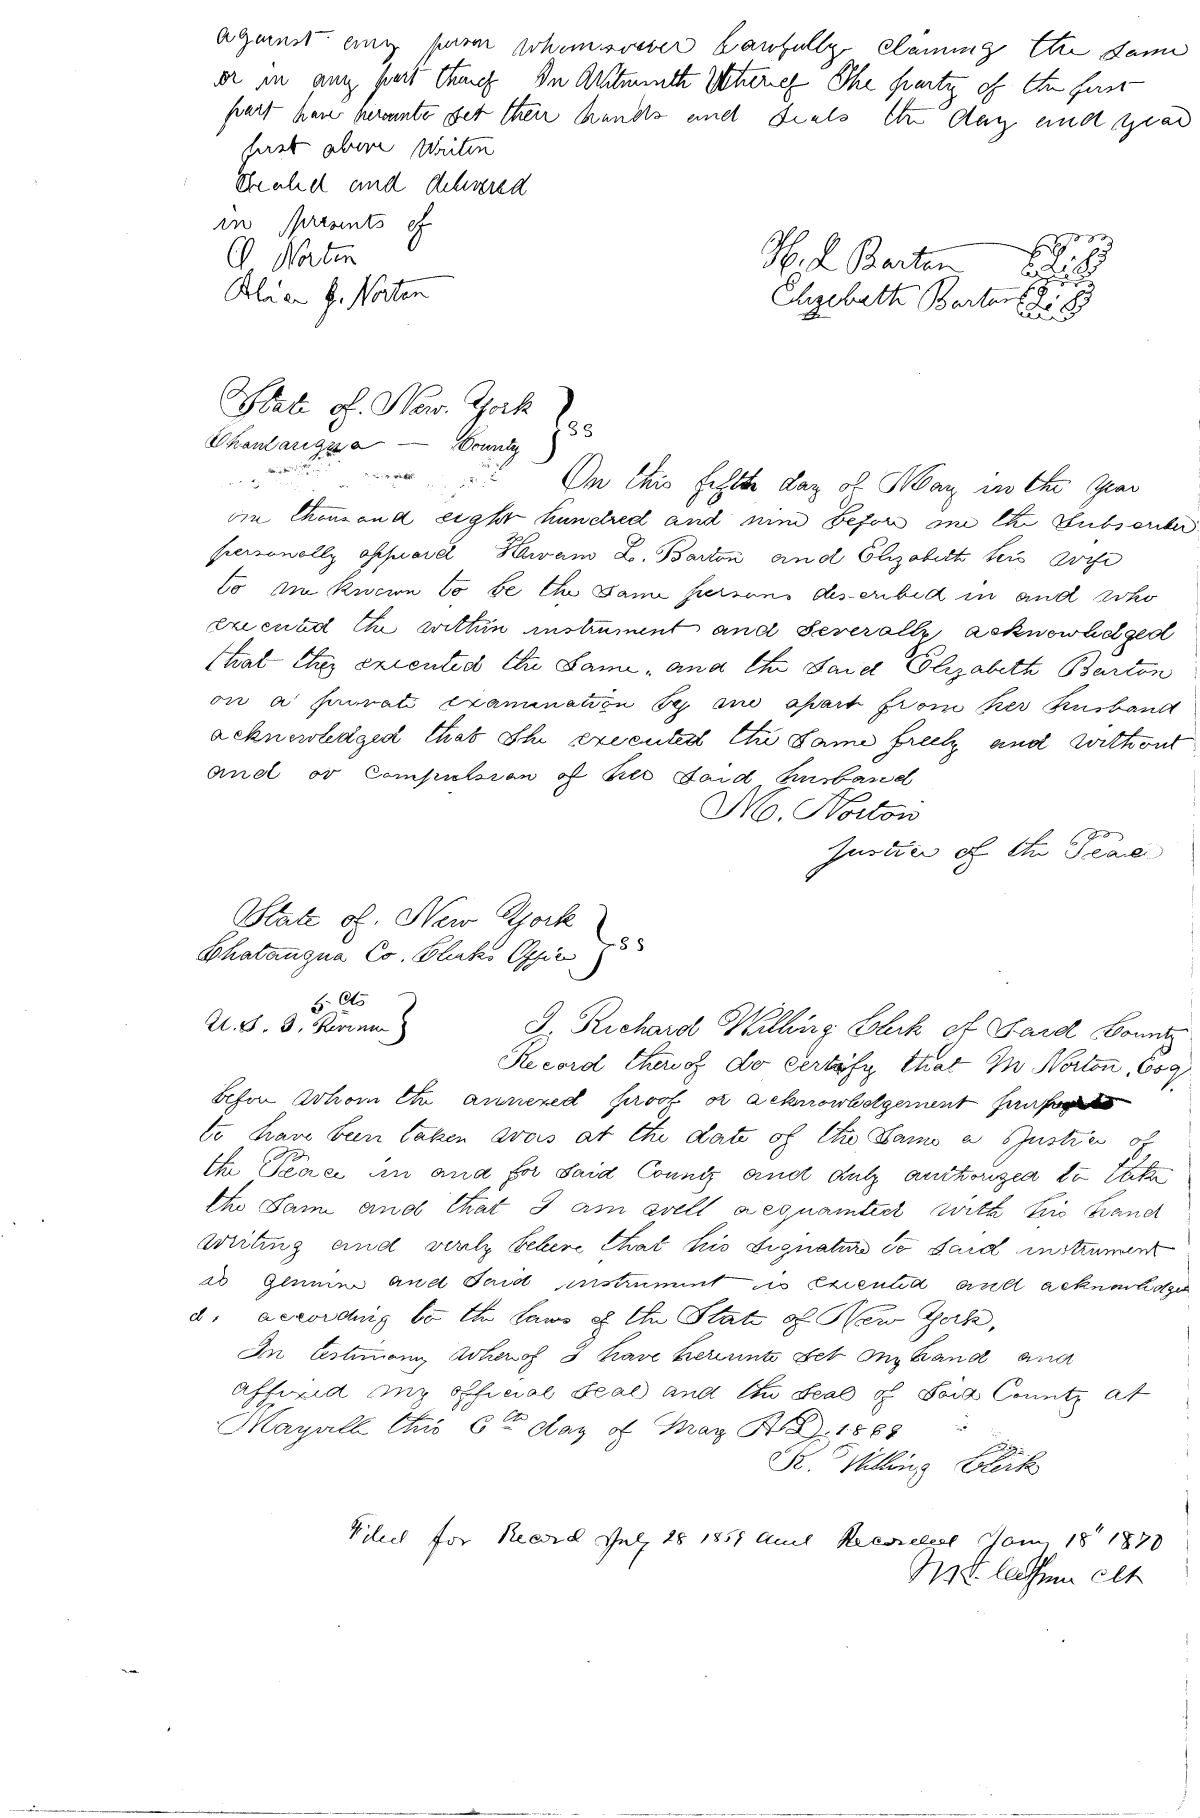 against any person whomsoever Lawfully claiming the Same
or in any part thereof In Witnesseth Whereof The party of the first
part have hereunto set their hands and Seals the day and year
first above Writen
Sealed and delivered
in presents of
O Norten
H. L Barton L. S
Norten
Elizebeth Barton L. S
State of. New. York
County } SS
On this fifth day of May in the year
one thousand eight hundred and nine before me the Subscriber
personally appeard Hiram L. Barton and Elizabeth his wife
to me known to be the Same persons described in and who
executed the within instrument and Severally acknowledged
that they executed the Same, and the Said Elizabeth Barton
on a private examination by me apart from her husband
acknowledged that She executed the Same freely and without
and or compulsion of her Said husband
M. Norton
Justice of the Peace
State of. New York
Chatauqua Co. Clerks Office } SS
5 Cts
U. S. I. Revenue }
I, Richard Willing Clerk of Said County
Record thereof do certify that M Norton, Esq
before whom the annexed proof or acknowledgement purports
to have been taken was at the date of the Same a Justice of
the Peace in and for Said County and duly authorized to take
the Same and that I am well acquainted with his hand
writing and verily beleve that his signature to Said instrument
is genuine and Said instrument is executed and acknowledge
d. according to the laws of the State of New York,
In testimony Whereof I have hereunto Set my hand and
affixed my official Seal and the Seal of Said County at
Mayvill this 6th day of May A D. 1869
R. Willing Clerk
Filed for Record July 28 1869 and Recorded Jany 18" 1870
Clk